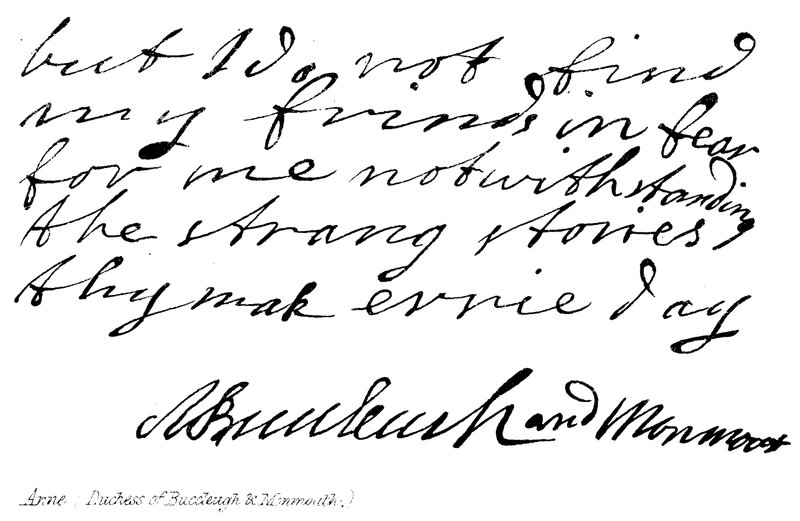 but I do not find
my frinds in fear
for me notwithstanding
the strang stories
thy mak evrie day
A Buccleuch and Monmoout
Anne (Duchess of Buccleugh & Monmouth.)